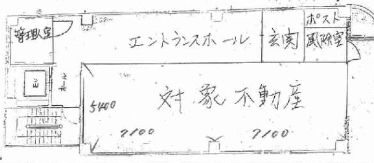 ポスト
管理室
エントランスホール
玄関
風除室
ホール
対象不動産
5400
7100
7100